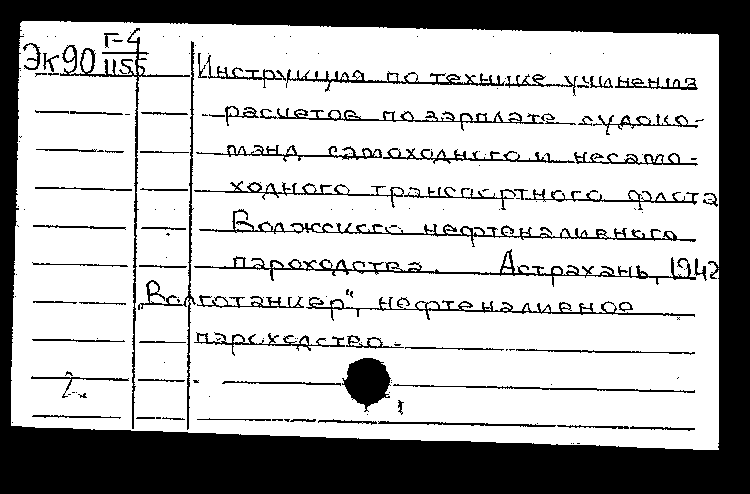 Эк90 Г-4
1155
Инструкция по технике учинения
расчетов по зарплате судоко-
манд самоходного и несамо-
ходного транспортного флота
Волжского нефтеналивного
пароходства. Астрахань, 1942
„Волготанкер", нефтеналивное
пароходство.
2.